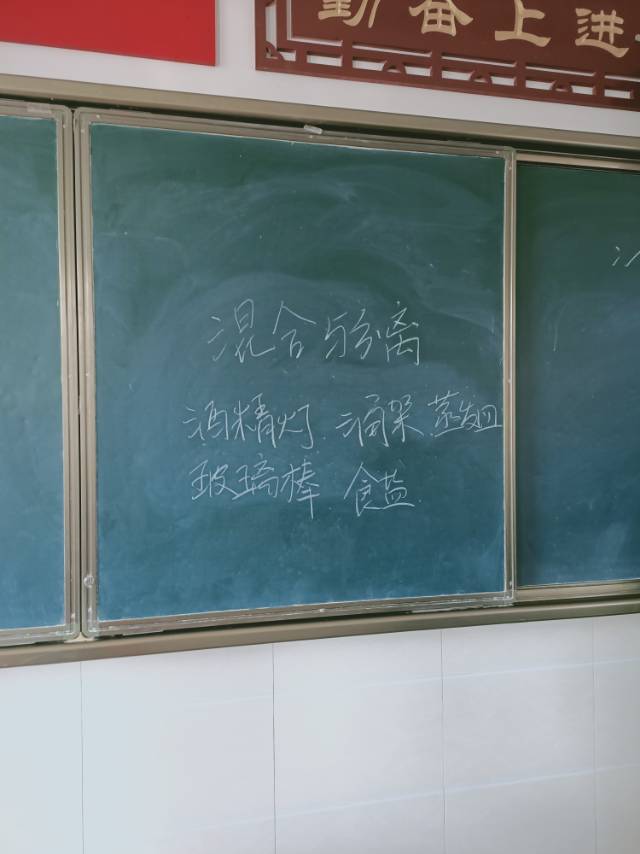 勤奋上进
混合与分离
酒精灯. 漏架. 蒸发皿
玻璃棒. 食盐.